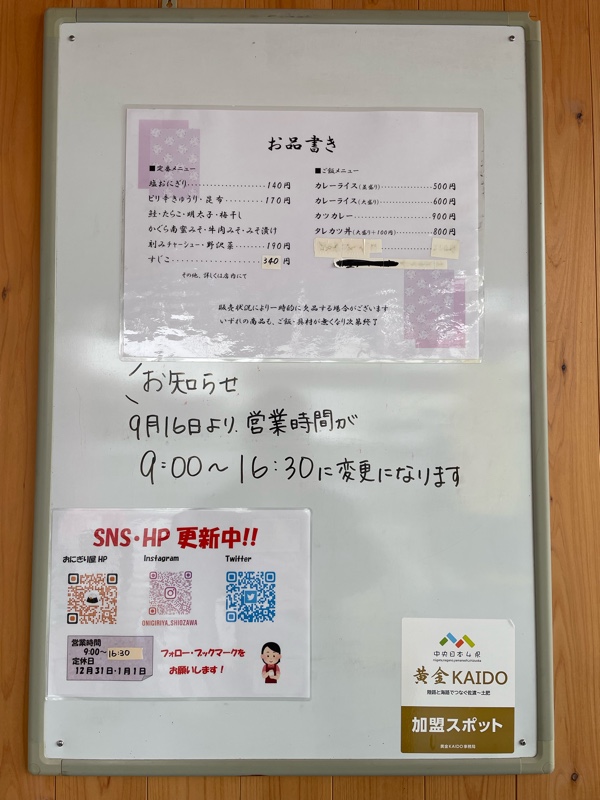 お品書き
■定番メニュー
塩おにぎり……………………140円
ピリ辛きゅうり・昆布…………170円
鮭・たらこ・明太子・梅干し
かぐら南蛮みそ・牛肉みそ・みそ漬け
刻みチャーシュー・野沢菜………190円
すじこ 340円
その他、詳しくは店内にて
■ご飯メニュー
カレーライス(並盛り)……………500円
カレーライス(大盛り)……………600円
カツカレー……………………900円
タレカツ丼(大盛り+100円)………800円
販売状況により一時的に欠品する場合がございます
いずれの商品も、ご飯・具材が無くなり次第終了
お知らせ
9月16日より、営業時間が
9:00〜16:30に変更になります
SNS・HP 更新中!!
おにぎり屋 HP
Instagram
Twitter
ONIGIRIYA_SHIOZAWA
営業時間
9:00〜16:30
定休日
12月31日・1月1日
フォロー・ブックマークを
お願いします!
中央日本四県
黄金KAIDO
陸路と海路でつなぐ佐渡〜土肥
加盟スポット
黄金KAIDO事務局